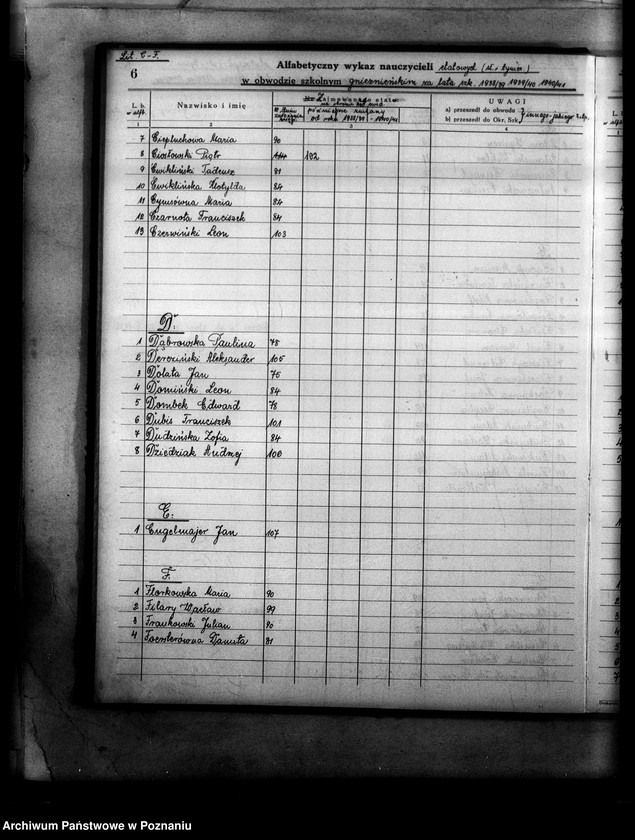 Lit. C-F.
6
Alfabetyczny wykaz nauczycieli etatowych (st. i tymcz.)
w obwodzie szkolnym gnieźnieńskim na lata szk. 1938/39 1939/40 1940/41
L. b.
Nazwisko i imię
Zajmowanego etatu
późniejsze zmiany
od roku 1938/39 - 1940/41
UWAGI
a) przeszedł do obwodu
b) przeszedł do Okr. Szk.
1 2 3 4
7 Ciepłuchowa Maria 90
8 Ciosłowski Piotr 102
9 Ćwikliński Tadeusz 81
10 Ćwiklińska Klotylda 84
11 Cymsówna Maria 84
12 Czarnota Franciszek 84
13 Czerwiński Leon 103
D:
1 Dąbrowska Paulina 78
2 Dereziński Aleksander 105
3 Dolata Jan 75
4 Domiński Leon 84
5 Dombek Edward 78
6 Dubis Franciszek 101
7 Dudzińska Zofia 84
8 Dziedziak Andrzej 100
E:
1 Engelmajer Jan 107
F.
1 Florkowska Maria 90
2 Filary Wacław 99
3 Frankowski Julian 90
4 Foersterówna Danuta 81
Archiwum Państwowe w Poznaniu